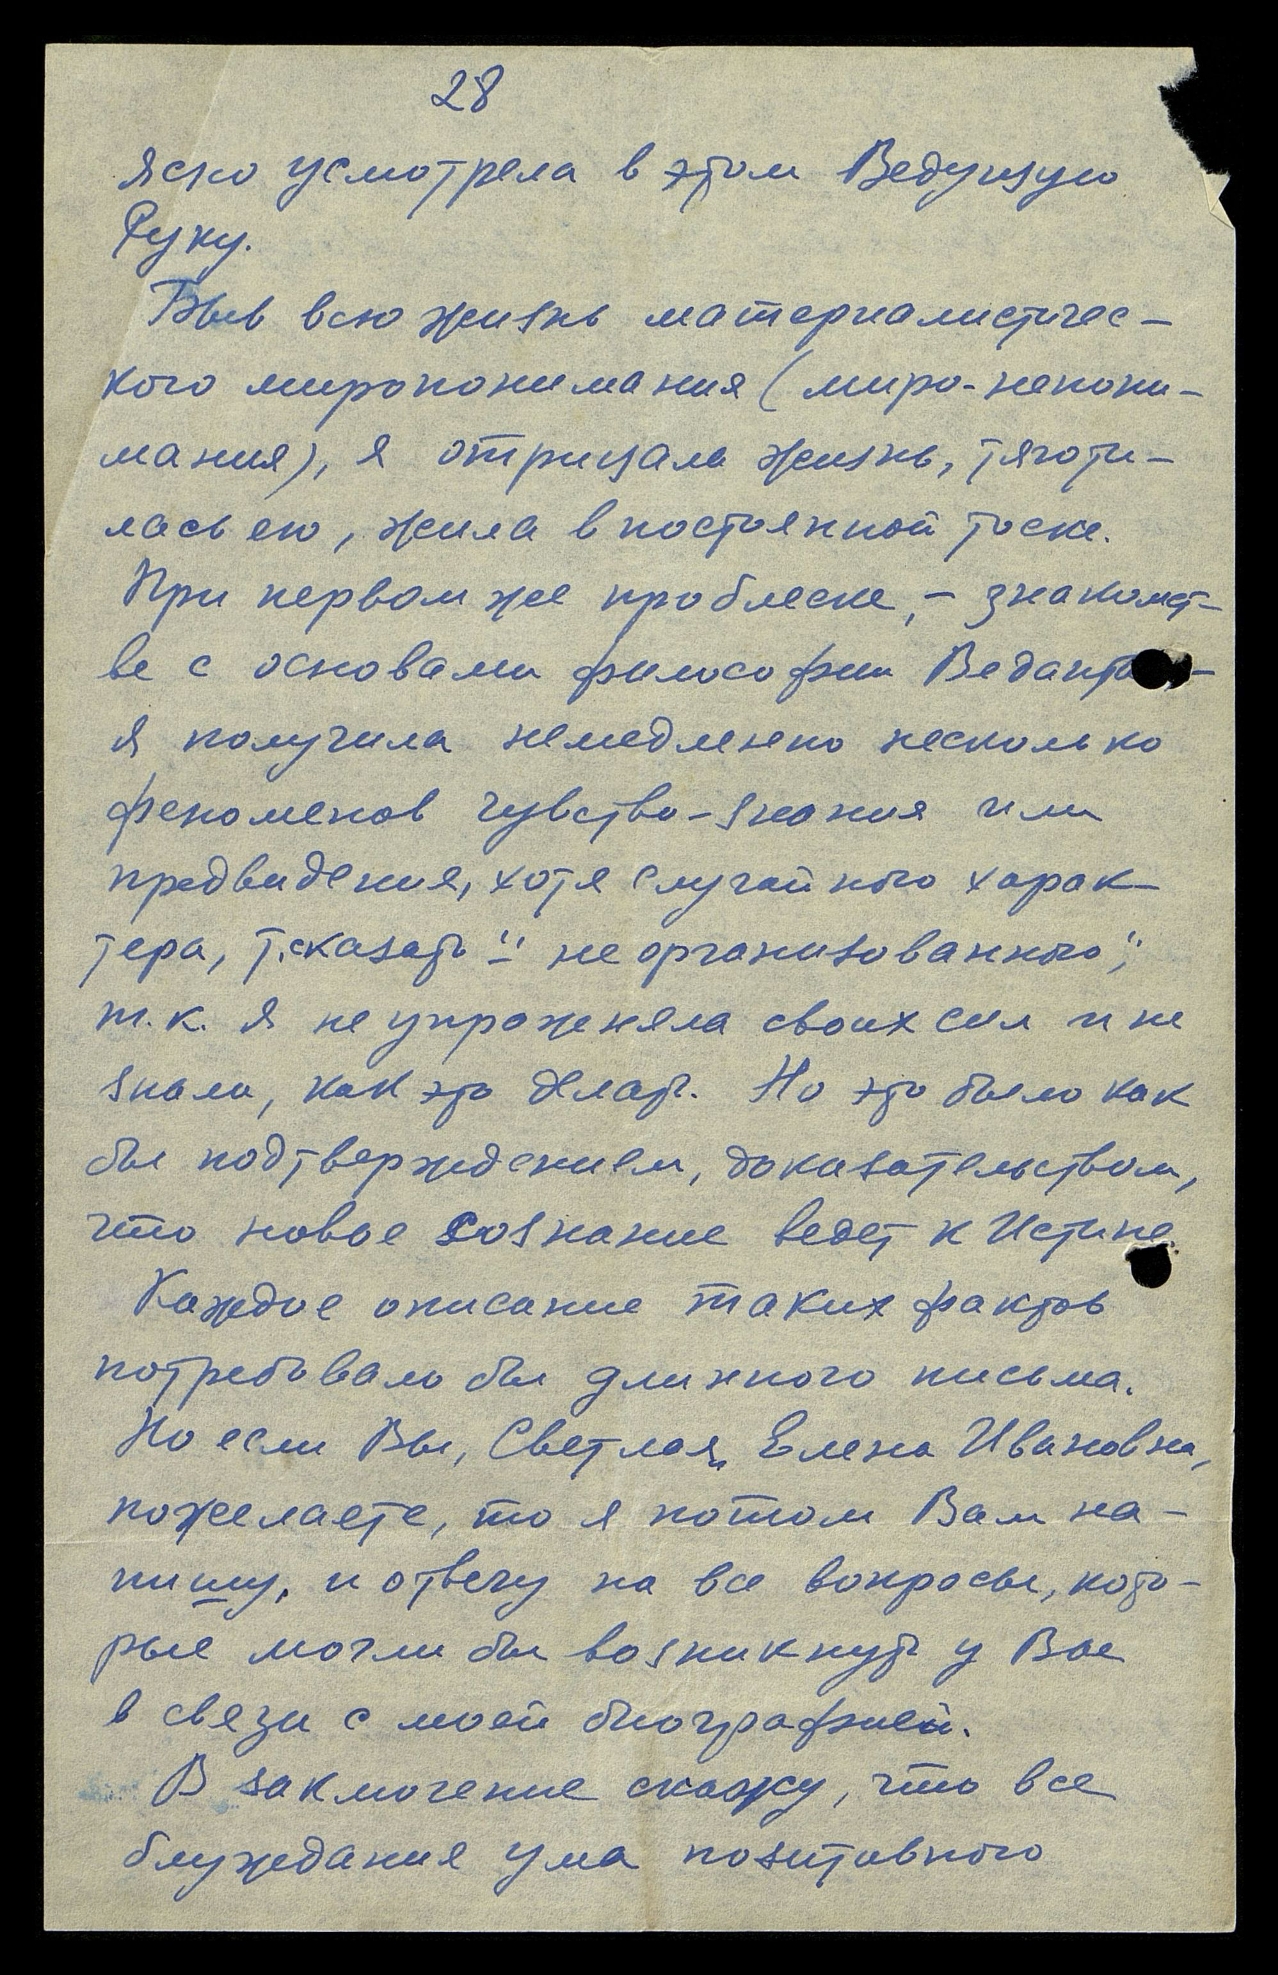 28
ясно усмотрела в этом Ведущую
Руку.
Быв всю жизнь материалистичес-
кого миропонимания (миро-непони-
мания), я отрицала жизнь, тяготи-
лась ею, жила в постоянной тоске.
При первом же проблеске, - знакомст-
ве с основами философии Веданты -
я получила немедленно несколько
феноменов чувство-знания или
предвидения, хотя случайного харак-
тера, т.сказать "неорганизованного",
т.к. я не упражняла своих сил и не
знала, как это делать. Но это было как
бы подтверждением, доказательством,
что новое сознание ведет к Истине.
Каждое описание таких фактов
потребовало бы длинного письма.
Но если Вы, Светлая, Елена Ивановна,
пожелаете, то я потом Вам на-
пишу, и отвечу на все вопросы, кото-
рые могли бы возникнуть у Вас
в связи с моей биографией.
В заключение скажу, что все
блуждания ума позитивного